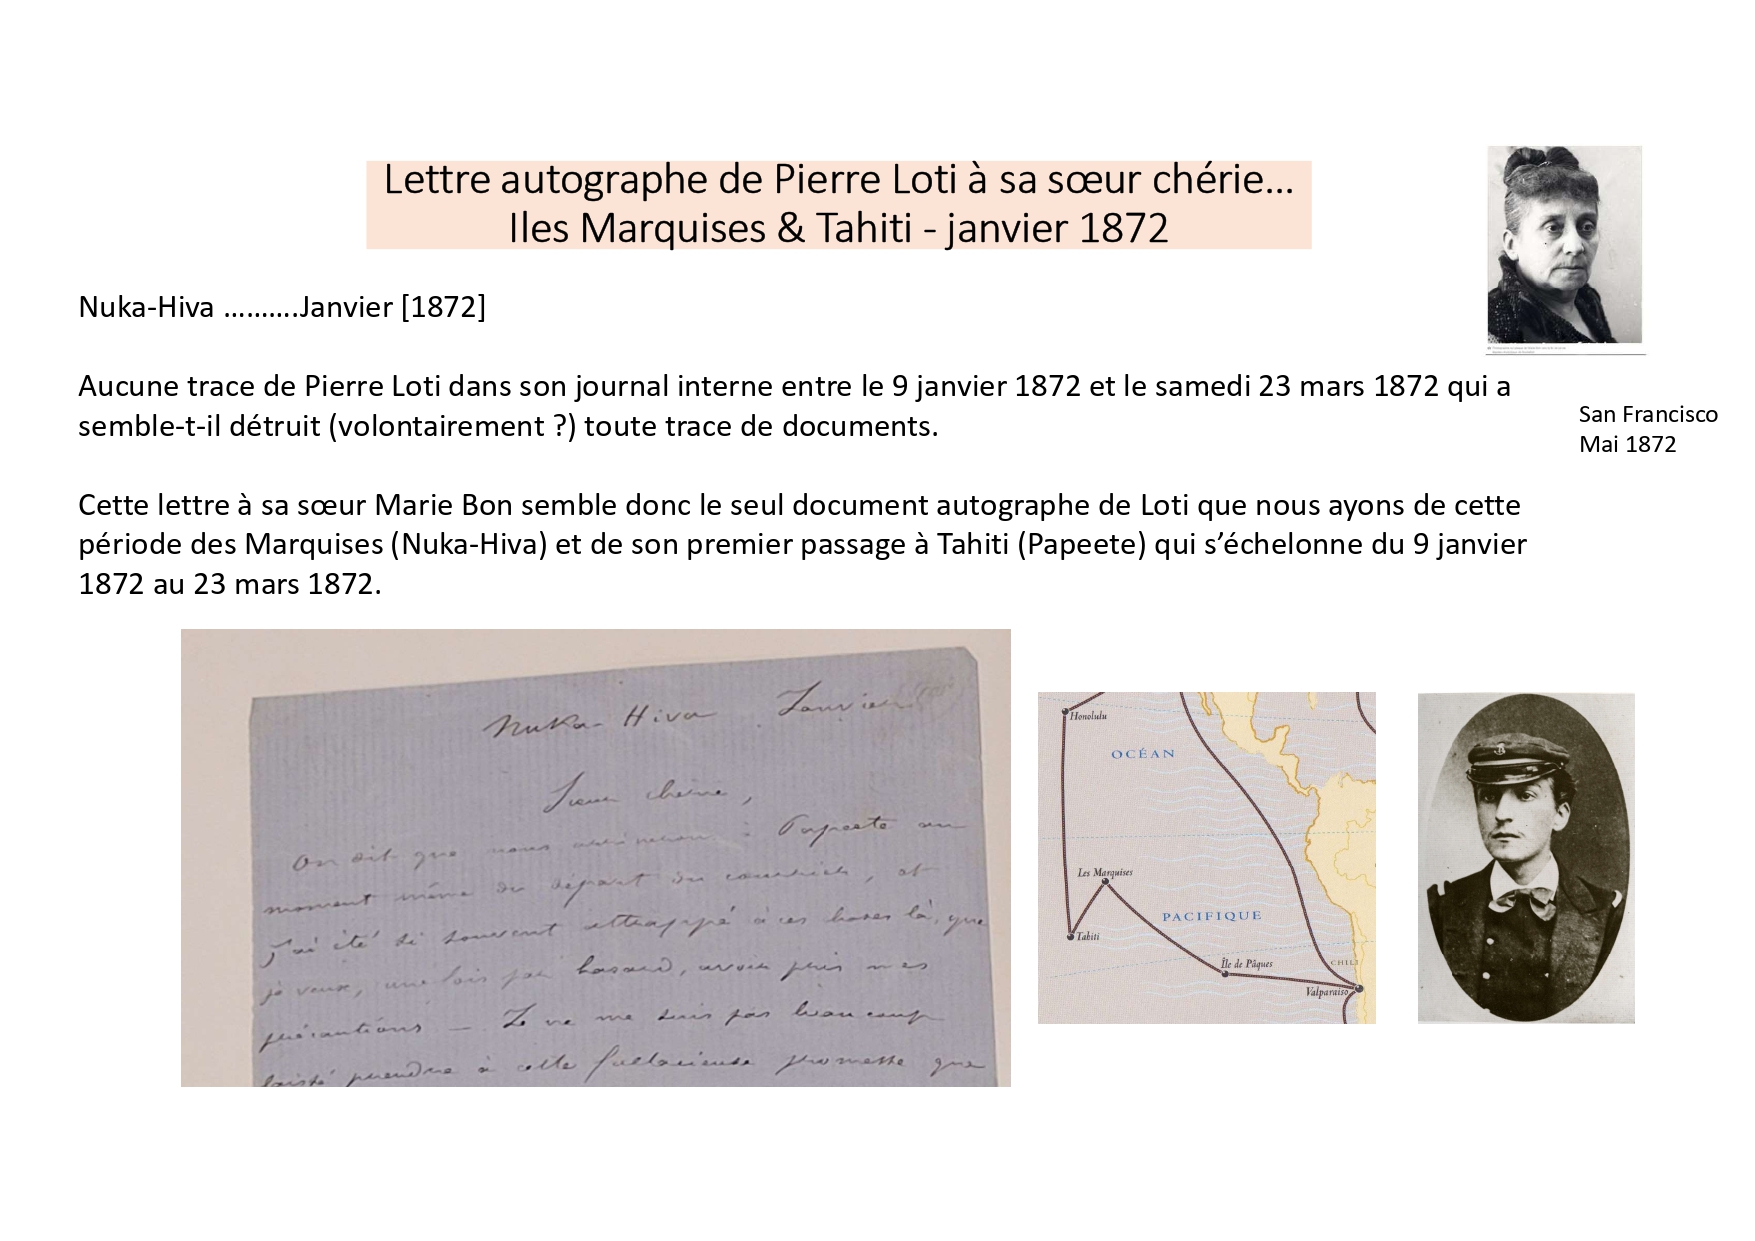 Lettre autographe de Pierre Loti à sa sœur chérie…
Iles Marquises & Tahiti - janvier 1872
Nuka-Hiva ……….Janvier [1872]
Aucune trace de Pierre Loti dans son journal interne entre le 9 janvier 1872 et le samedi 23 mars 1872 qui a
semble-t-il détruit (volontairement ?) toute trace de documents.
San Francisco
Mai 1872
Cette lettre à sa sœur Marie Bon semble donc le seul document autographe de Loti que nous ayons de cette
période des Marquises (Nuka-Hiva) et de son premier passage à Tahiti (Papeete) qui s’échelonne du 9 janvier
1872 au 23 mars 1872.
Nuka-Hiva Janvier
Sœur chérie,
On dit que nous Papeete au
moment même du départ du courrier, et
j'ai été si souvent attrappé à ces bases là, que
je veux, une fois par hasard, avoir pris mes
précautions — Je ne me suis pas beaucoup
laissé prendre à cette fallacieuse promesse que
Honolulu
OCÉAN
Les Marquises
PACIFIQUE
Tahiti
Île de Pâques
CHILI
Valparaiso